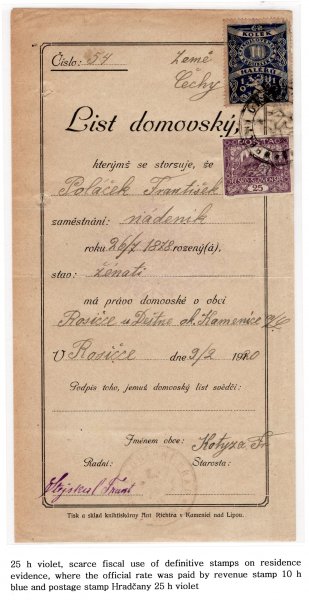 Číslo: 54
Země
Čechy
KOLEK
10
HALÉŘŮ
List domovský,
25
kterýmž se stvrzuje, že
Poláček František
zaměstnání: nádeník
roku 26/7 1878 rozený(á),
stav: ženatý
má právo domovské o obci
Rosičce u Deštné ok. Kamenice n/L
V Rosičce dne 9/2 1920
Podpis toho, jemuž domovský list svědčí:
Jménem obce: Kotyza Fr
Radní: Starosta:
Frant
Tisk a sklad knihtiskárny Ant Richtra v Kamenici nad Lipou.
25 h violet, scarce fiscal use of definitive stamps on residence
evidence, where the official rate was paid by revenue stamp 10 h
blue and postage stamp Hradčany 25 h violet